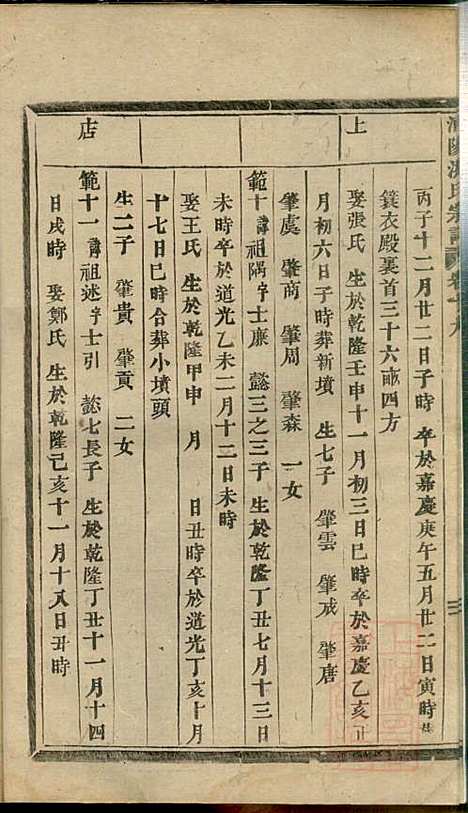 氏宗譜 卷十九
三
上
丙子十二月廿二日子時 卒於嘉慶庚午五月廿二日寅時
簑衣殿裏首三十六畝四方
娶張氏 生於乾隆壬申十一月初三日巳時卒於嘉慶乙亥正
月初六日子時葬新墳 生七子 肇雲 肇成 肇唐
肇虞 肇商 肇周 肇森 一女
範十 諱祖隅字士廉 懿三之三子 生於乾隆丁丑七月十三日
未時卒於道光乙未二月十二日未時
娶王氏 生於乾隆甲申 月 日丑時卒於道光丁亥十月
十七日巳時合葬小墳頭
生二子 肇貴 肇貢 二女
店
範十一 諱祖述字士引 懿七長子 生於乾隆丁丑十一月十四
日戌時 娶鄭氏 生於乾隆己亥十一月十八日丑時